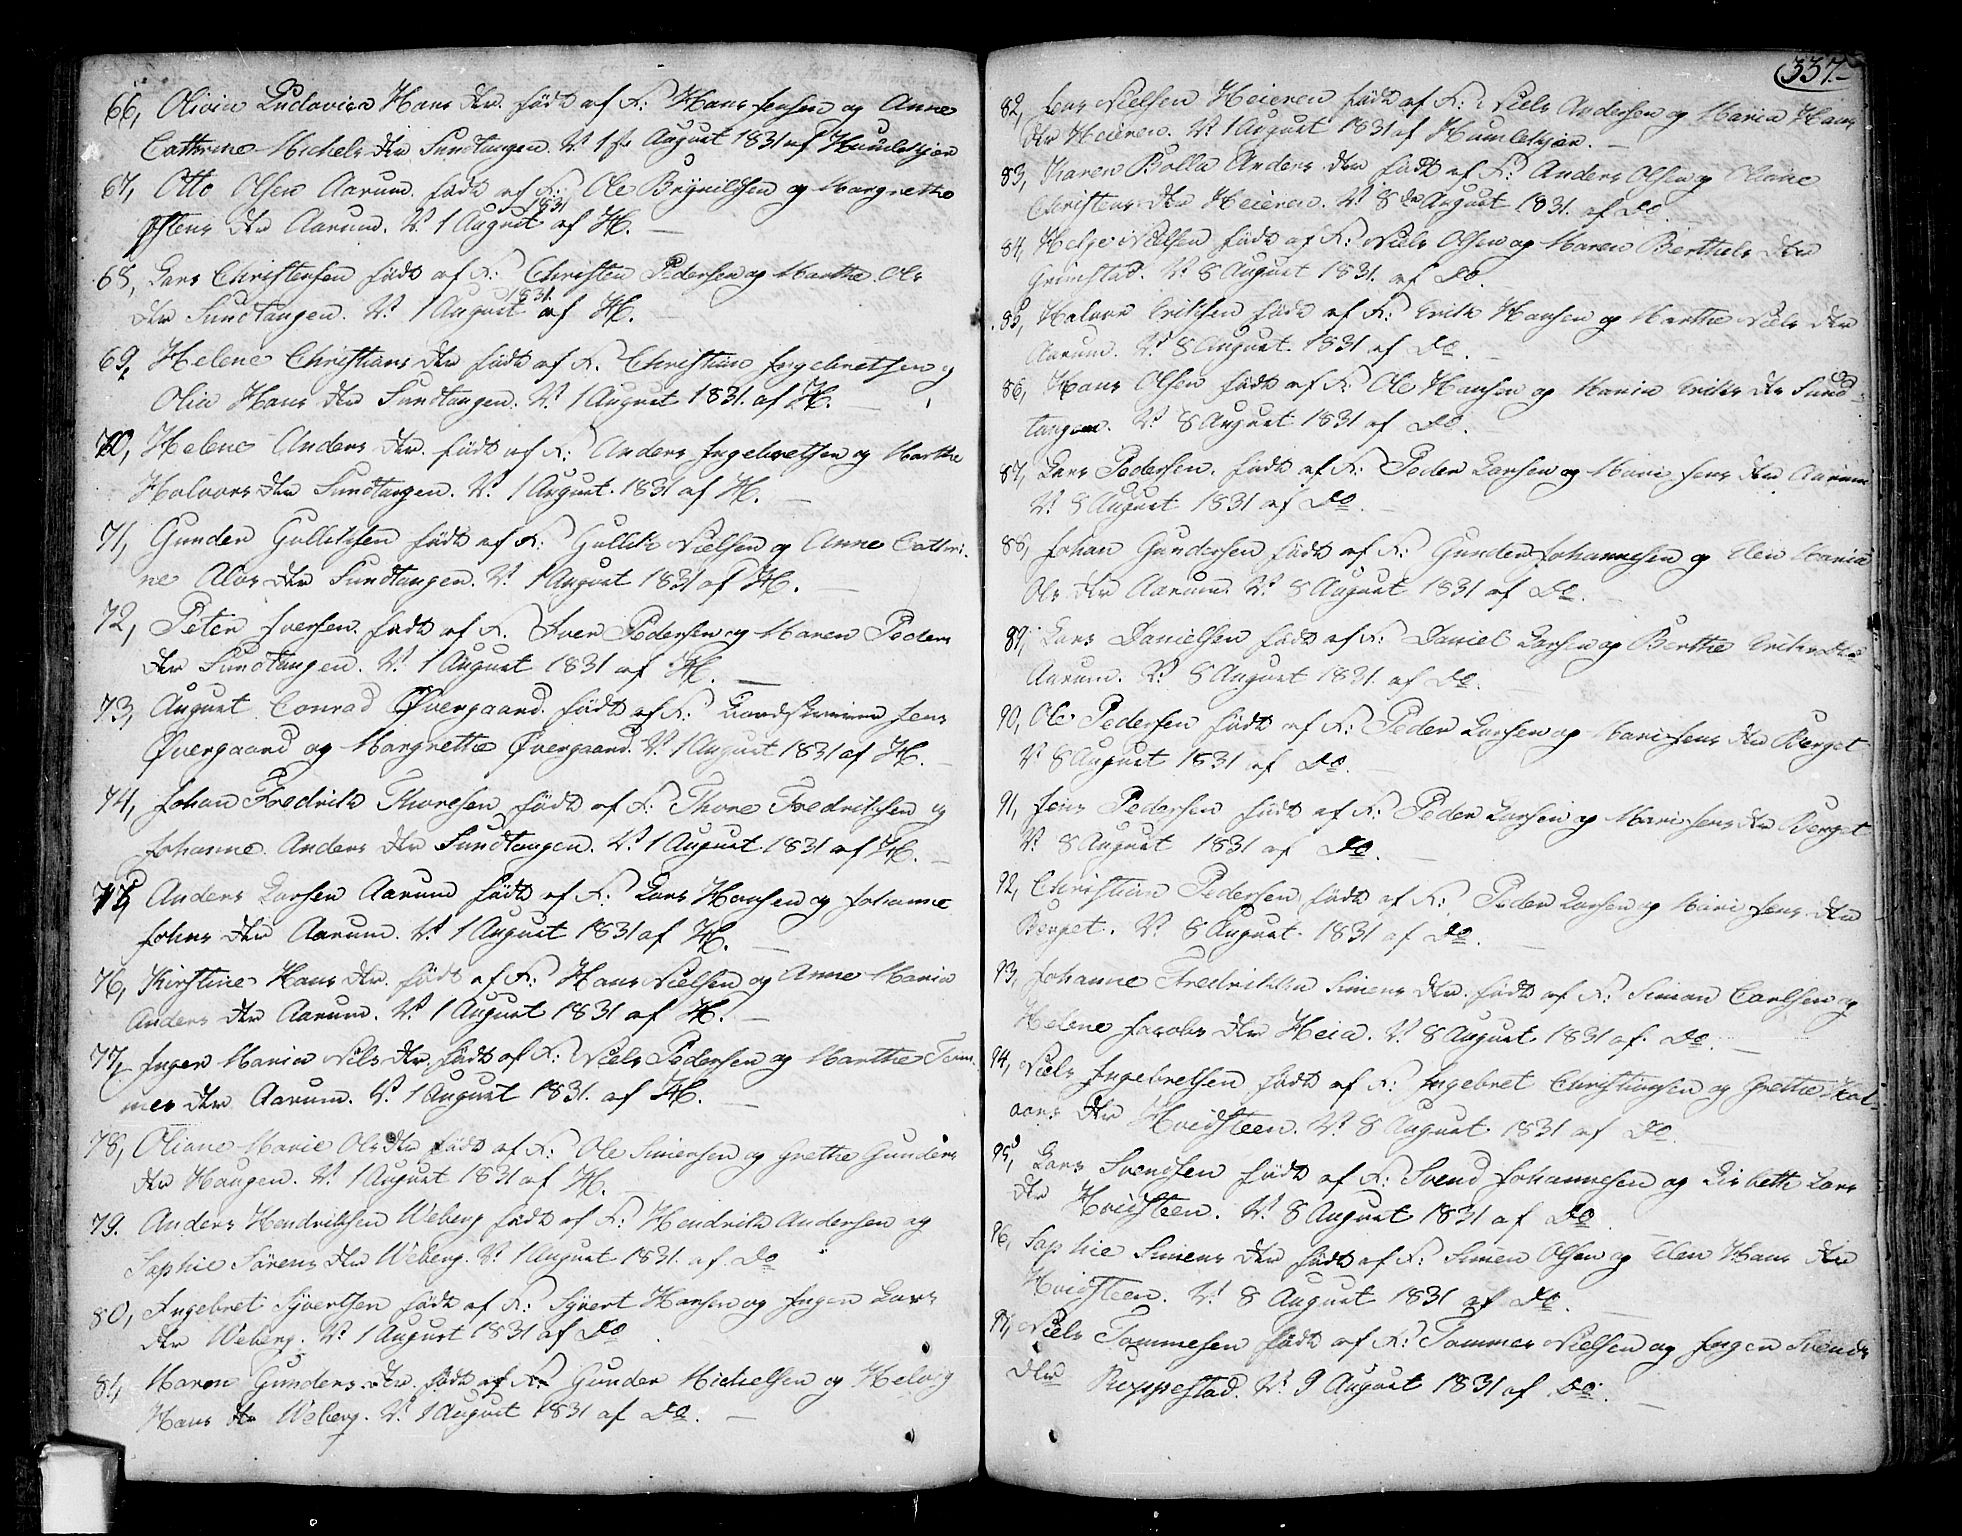 66, Olivia Ludovica Hans dtr. född af F: Hans Jensen og Anne
Cathrine Michels dtr Sundtangen. V: 1st August 1831 af Humlekjær
67, Otto Olsen Aarum. född af F: Ole Brynildsen og Margrethe
Østens dtr Aarum. V: 1 August 1831 af H. —
68, Lars Christensen född af F: Christen Pedersen og Marthe Ols
dtr Sundtangen. V: 1 August 1831. af H. —
69, Helene Christians dtr född af F. Christian Ingebretsen og
Olia Hans dtr Sundtangen. V: 1 August 1831. af H. —
70, Helene Anders dtr. född af F: Anders Ingebretsen og Marthe
Halvors dtr Sundtangen. V: 1 August. 1831 af H. —
71, Gunder Gulliksen född af F: Gullik Nielsen og Anne Cathri-
ne Olos dtr Sundtangen. V: 1 August 1831 af H. —
72, Peter Iversen. född af F. Iver Pedersen og Maren Peders
dtr Sundtangen. V: 1 August 1831 af H. —
73, August Conrad Øvergaard. född af F: Jens
Øvergaard og Margrethe Øvergaard. V: 1 August 1831 af H. —
74, Johan Fredrik Thoresen född af F: Thore Fredriksen og
Johanne Anders dtr Sundtangen. V: 1 August 1831 af H. —
75, Anders Larsen Aarum född af F: Lars Hansen og Johanne
Johns dtr Aarum. V: 1 August 1831 af H. —
76, Kirstine Hans dtr. född af F: Hans Nielsen og Anne Maria
Anders dtr Aarum. V: 1 August 1831 af H. —
77, Ingen Maria Niels dtr. född af F: Niels Pedersen og Marthe Tom
mes dtr Aarum. V: 1 August 1831. af H. —
78, Oliane Marie Ols dtr född af F: Ole Simensen og Grethe Gunders
dtr Haugen. V: 1 August 1831 af H. —
79. Anders Hendriksen Weberg född af F: Hendrik Andersen og
Sophie Sørens dtr Weberg. V: 1 August 1831. af Do
80, Ingebret Syvertsen född af F: Syvert Hansen og Ingen Lars
dtr Weberg. V: 1 August 1831 af Do
81, Maren Gunders dtr. född af F: Gunder Michelsen og Helvig
Hans dtr Weberg. V: 1 August 1831 af Do. —
337.
82, Lars Nielsen Heieren född af F: Niels Andersen og Maria Hans
dtr Heieren. V: 1 August 1831 af Humlekjær. —
83, Karen Bolla Anders dtr född af F: Anders Olsen og Oliane
Christens dtr Heieren. V: 8de August 1831. af Do.
84, Helge Nielsen född af F: Niels Olsen og Maren Berthels dtr
Grimstad. V: 8 August 1831. af Do.
85, Halvor Eriksen född af F: Erik Hansen og Marthe Niels dtr
Aarum. V: 8 August. 1831 af Do. —
86, Hans Olsen född af F: Ole Hansen og Maria Eriks dtr Sund-
tangen. V: 8 August 1831 af Do.
87, Lars Pedersen. född af F: Peder Larsen og Mari Jens dtr Aarum
V: 8 August 1831 af Do. —
88, Johan Gundersen född af F: Gunder Johannesen og Elen Maria
Ols dtr Aarum. V: 8 August 1831 af Do. —
89, Lars Danielsen född af F: Daniel Larsen og Berthe Eriks dtr
Aarum. V: 8 August 1831. af Do. —
90, Ole Pedersen född af F: Peder Larsen og Mari Jens dtr Berget
V: 8 August 1831 af Do. —
91, Jens Pedersen född af F: Peder Larsen og Mari Jens dtr Berget
V: 8 August 1831 af Do. —
92, Christian Pedersen född af F: Peder Larsen og Mari Jens dtr
Berget. V: 8 August. 1831 af Do. —
93, Johanne Fredrikke Simens dtr. född af F: Simon Carlsen og
Helene Jacobs dtr Heia. V: 8 August 1831 af Do. —
94, Niels Ingebretsen född af F: Ingebret Christiansen og Grethe Hal-
vors dtr Hvidsteen. V: 8 August 1831 af Do. —
95, Lars Svendsen född af F: Svend Johannesen og Lisbeth Lars
dtr Hvidsteen. V: 8 August 1831 af Do. —
96, Sophie Simens dtr född af F: Simen Olsen og Elen Hans dtr
Hvidsteen. V: 8 August 1831 af Do. —
97, Niels Tommesen född af F: Tommes Nielsen og Ingen Svends
dtr Ruppestad. V: 9 August 1831 af Do. —